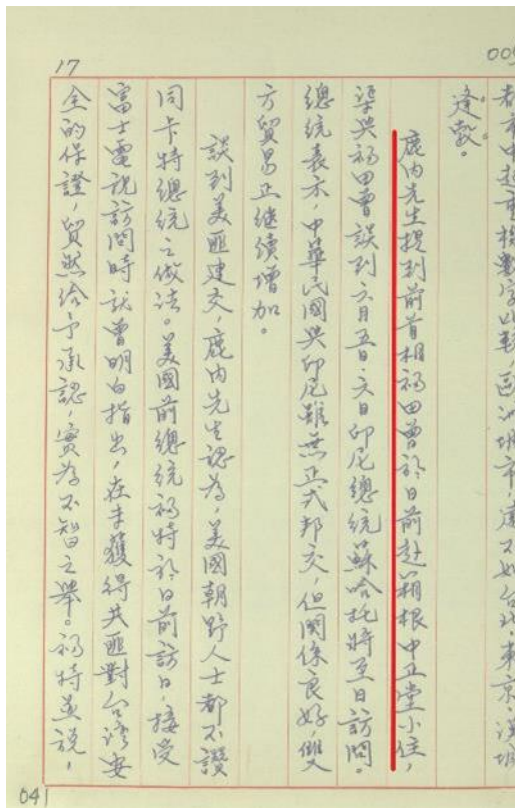 17
005
都市中起重機數字比較，歐洲城市，處不如台北、東京、漢城
逢勃。
鹿內先生提到前首相福田曾於日前赴箱根中正堂小住，
渠與福田曾談到六月五日、六日印尼總統蘇哈托將至日訪問。
總統表示，中華民國與印尼雖無正式邦交，但關係良好，雙
方貿易正繼續增加。
談到美匪建交，鹿內先生認為，美國朝野人士都不讚
同卡特總統之做法。美國前總統福特於日前訪日，接受
富士電視訪問時就曾明白指出，在未獲得共匪對台灣安
全的保證，貿然給予承認，實為不智之舉。福特並說，
041